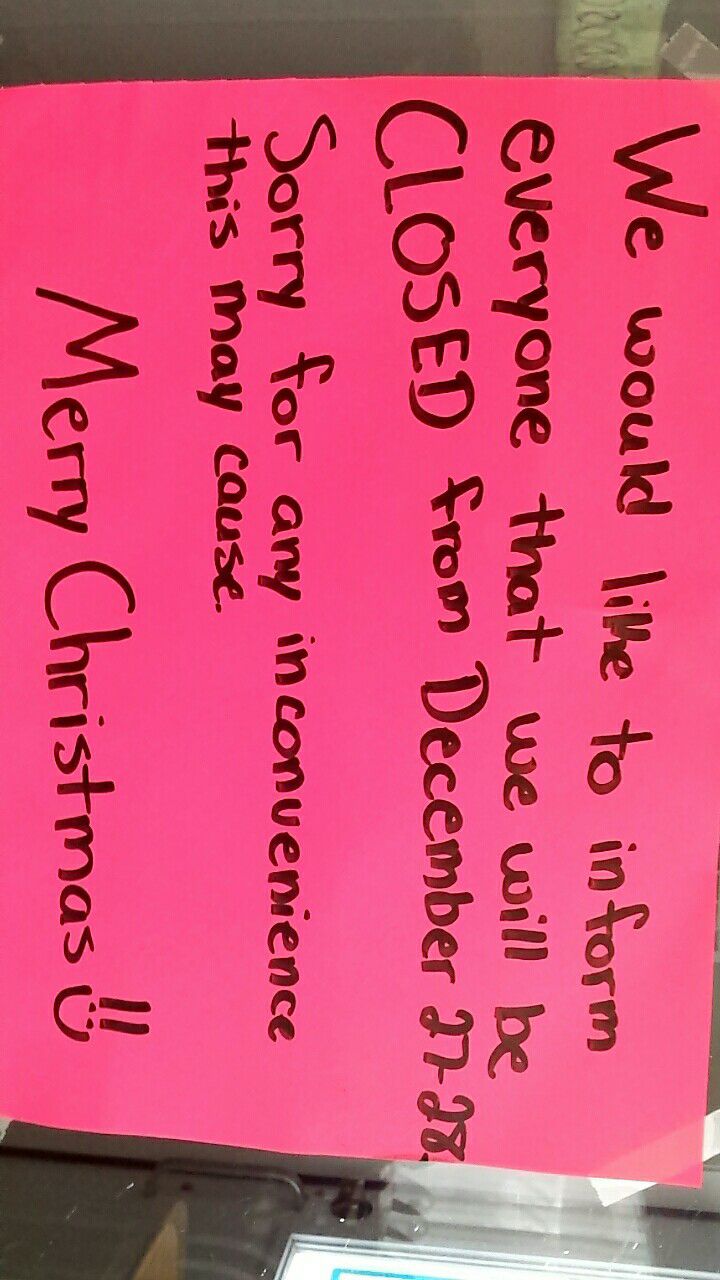 We would like to inform
everyone that we will be
CLOSED from December 27-28.
Sorry for any inconvenience
this may cause.
Merry Christmas!! Ü